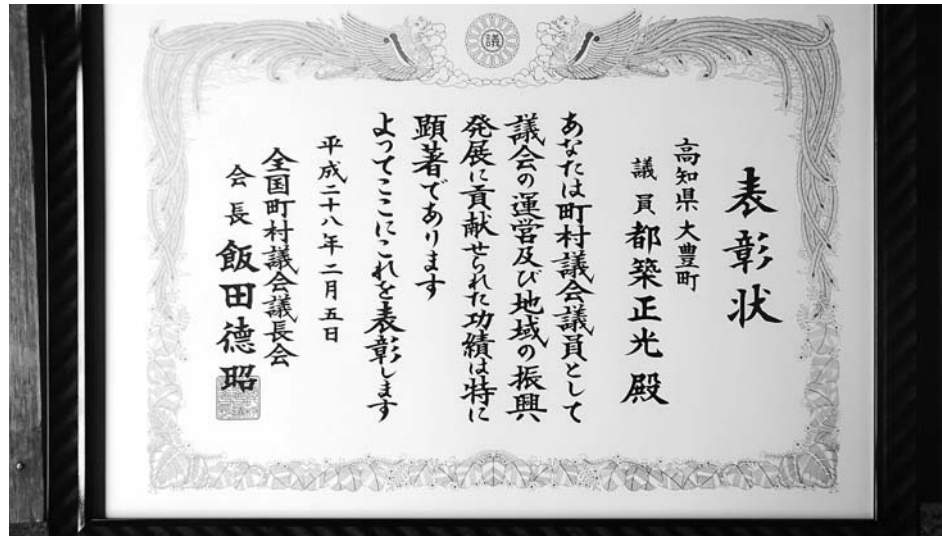 議
表彰状
高知県大豊町
議員都築正光殿
あなたは町村議会議員として
議会の運営及び地域の振興
発展に貢献せられた功績は特に
顕著であります
よってここにこれを表彰します
平成二十八年二月五日
全国町村議会議長会
会長飯田德昭